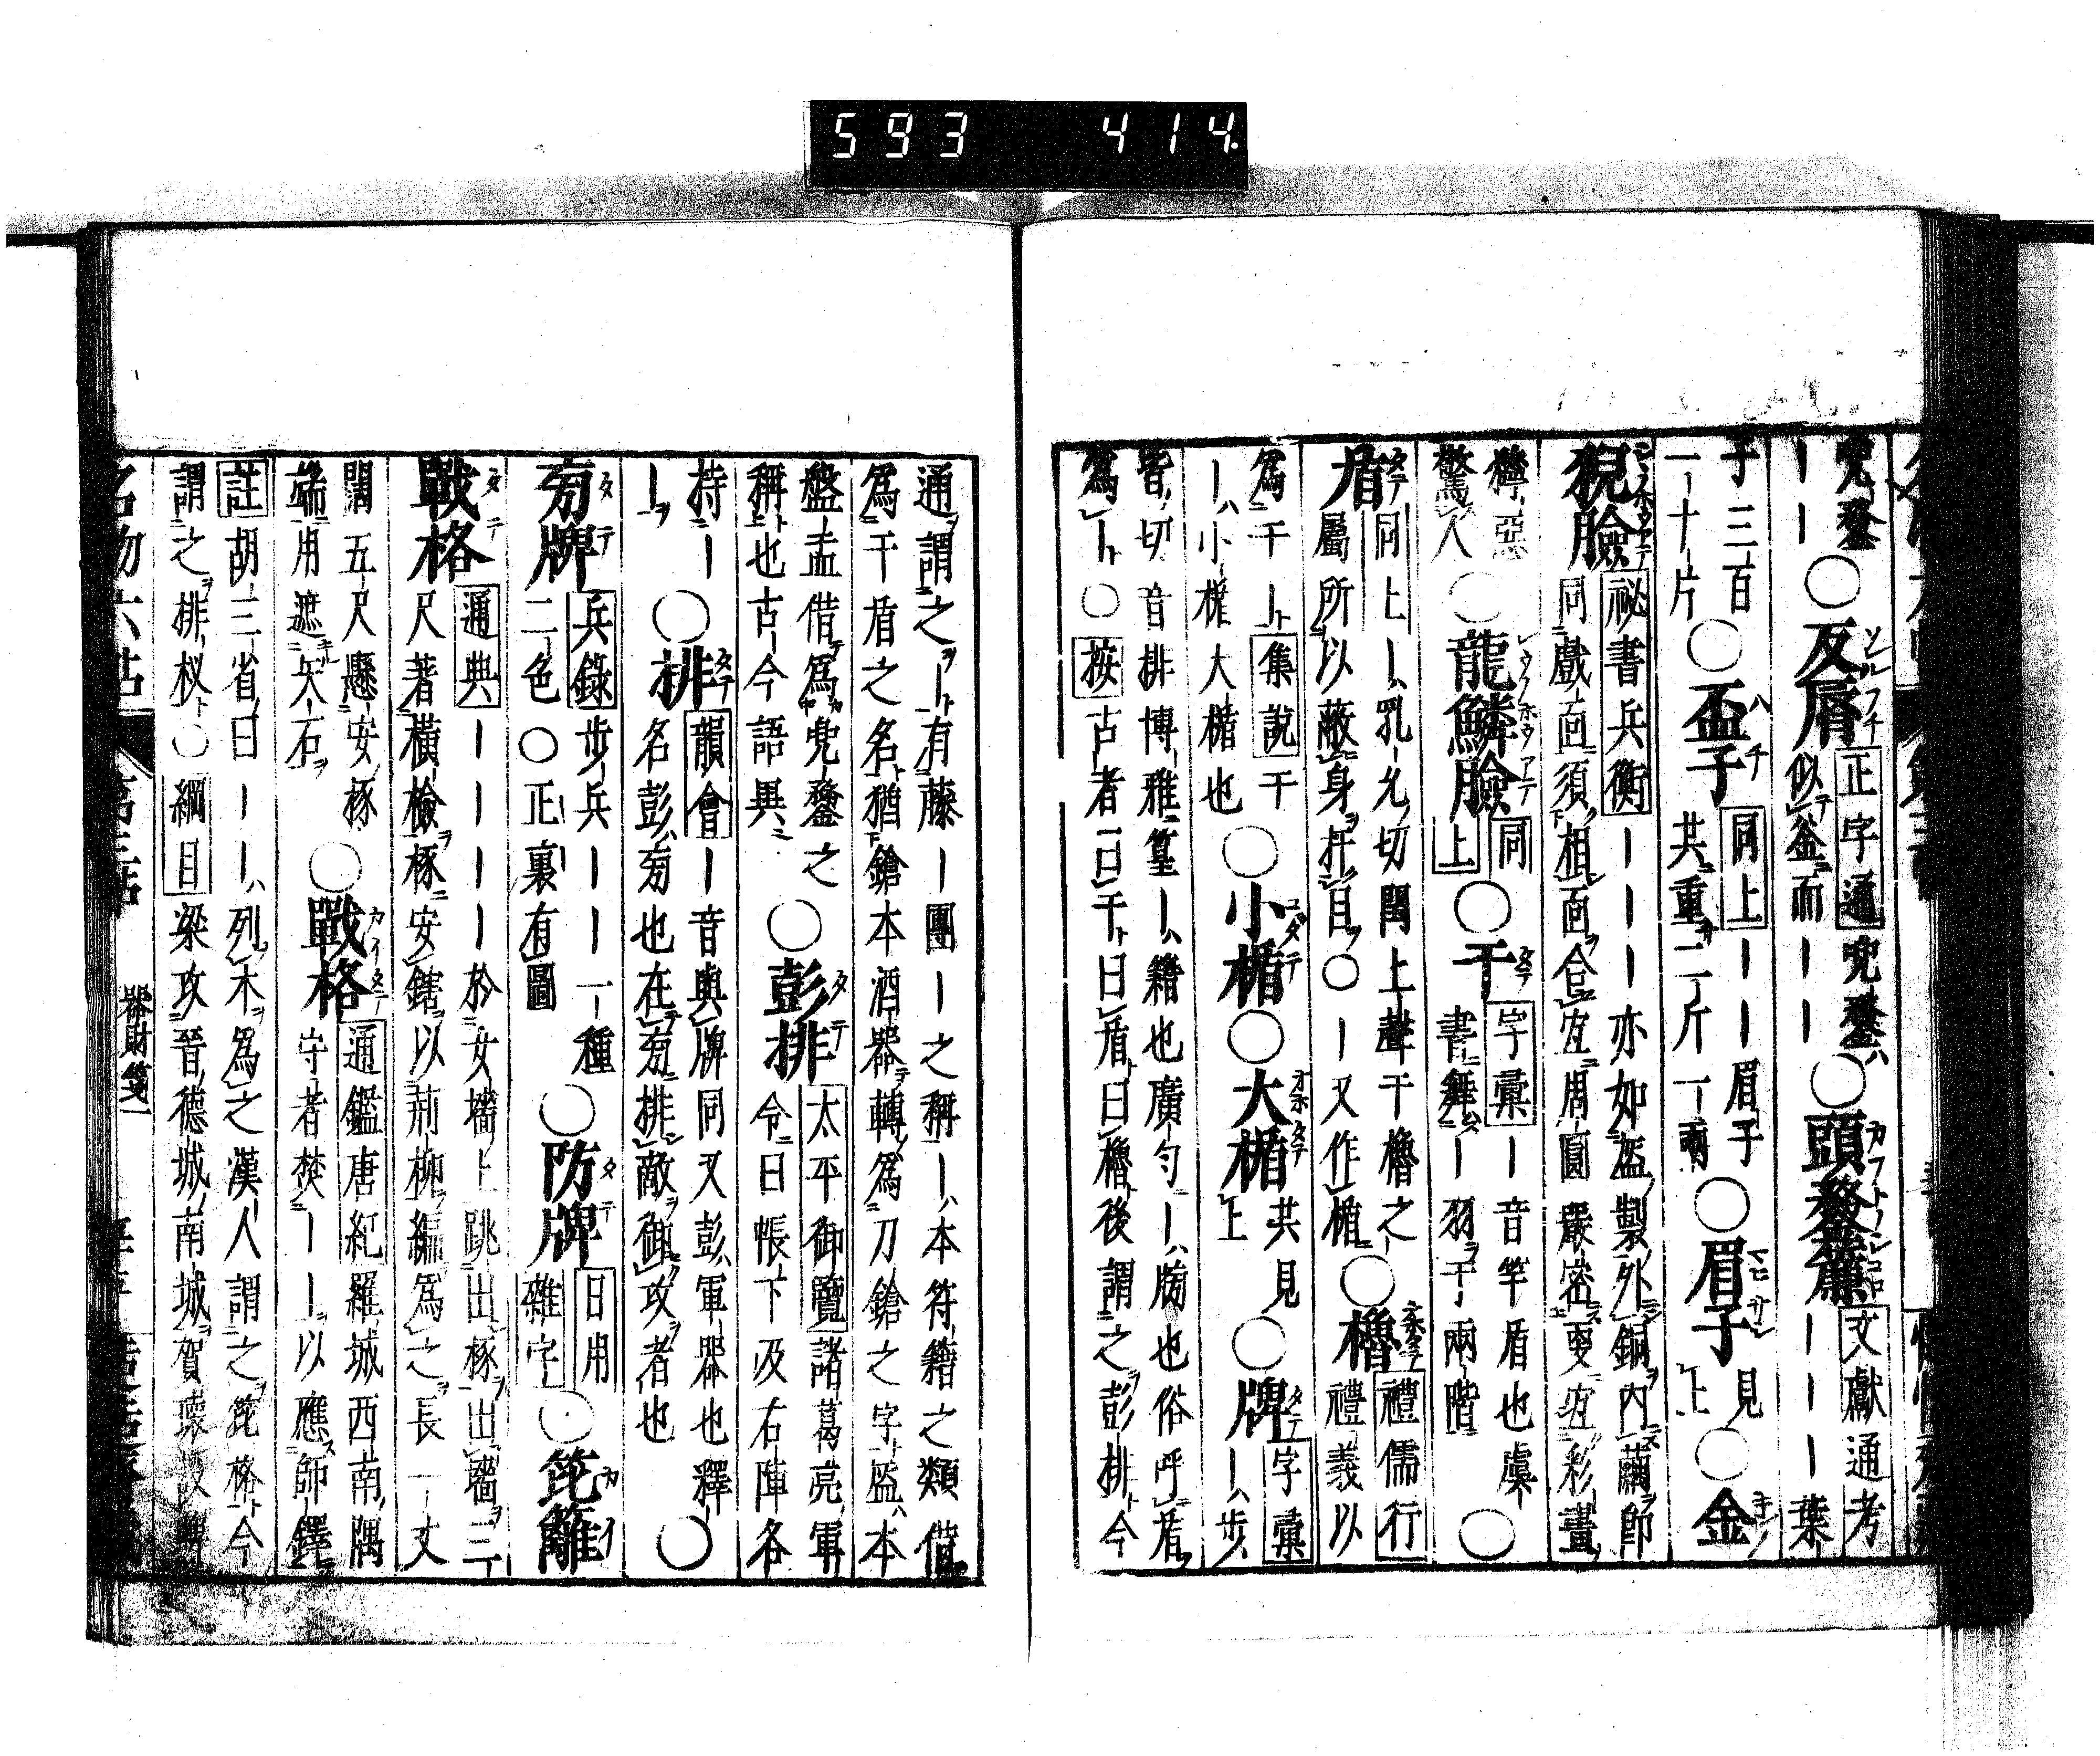 593 414.
兜鍪
ーー○反脣正字通兜鍪
似釜而ーー○頭鍪簾文獻通考
ーーー葉
子三百
一十片○盔子同上ーー眉子
共重二斤一兩○眉子見上○金
猊臉祕書兵衡ーーーー亦如盔製外銅内繭節
同戲面須相面合宜周圓嚴密更宜彩畫
獰惡
驚人○龍鱗臉同上○干字彙ー音竿盾也虞
書舞ー羽于兩階○
盾同上ー乳允切閏上聲干櫓之
屬所以蔽身扞目○ー又作楯○櫓禮儒行
禮義以
爲干ー集說干
ー小楯大楯也○小楯○大楯共見上○牌字彙
ー步
皆切音排博雅篁ー籍也廣勻ー牓也俗呼盾
爲ー○按古者曰干曰盾曰櫓後謂之彭排今
通謂之ー有藤ー團ー之稱ー本符籍之類借
爲干盾之名猶鎗本酒器轉爲刀鎗之字盔本
盤盂借爲兜鍪之
稱也古今語異○彭排太平御覽諸葛亮軍
令曰帳下及右陣各
持ー
ー○排韻會ー音與牌同又彭軍器也釋
名彭旁也在旁排敵御攻者也○
旁牌兵錄步兵ーー一種
二色○正裏有圖○防牌日用
雜字○笓籬
戰格通典ーーーー於女墻上跳出椓出墻三
尺著橫檢椓安鎋以荊柳編爲之長一丈
闊五尺懸安椓
端用遮矢石○戰格通鑑唐紀羅城西南隅
守者焚ーー以應師鐸
註胡三省曰ーー列木爲之漢人謂之笓格今
謂之排杈○綱目梁攻晉德城南城賀瓌
名物六帖
器財箋一